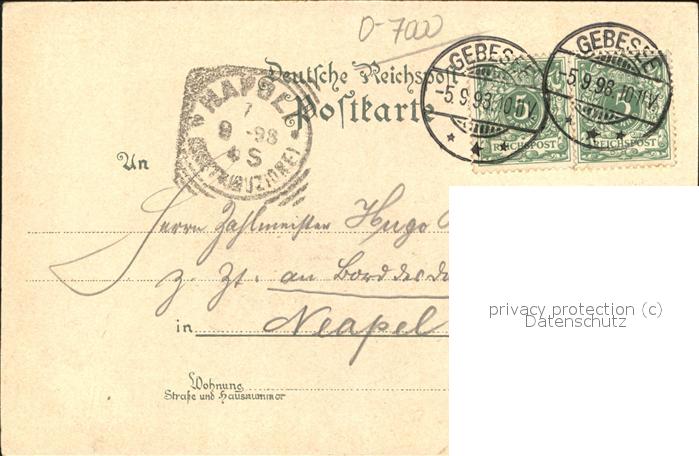 D-7000
Deutsche Reichspost
Postkarte
GEBESEE
-5.9.98.10-11V.
GEBESEE
-5.9.98.10-11V.
5
REICHSPOST
5
REICHSPOST
NAPOLI
7
9 -98
4 S
(DISTRIBUZIONE)
An
Herrn Zahlmeister Hugo
z. Zt. an Bord des
in Neapel
Wohnung
Straße und Hausnummer
privacy protection (c)
Datenschutz